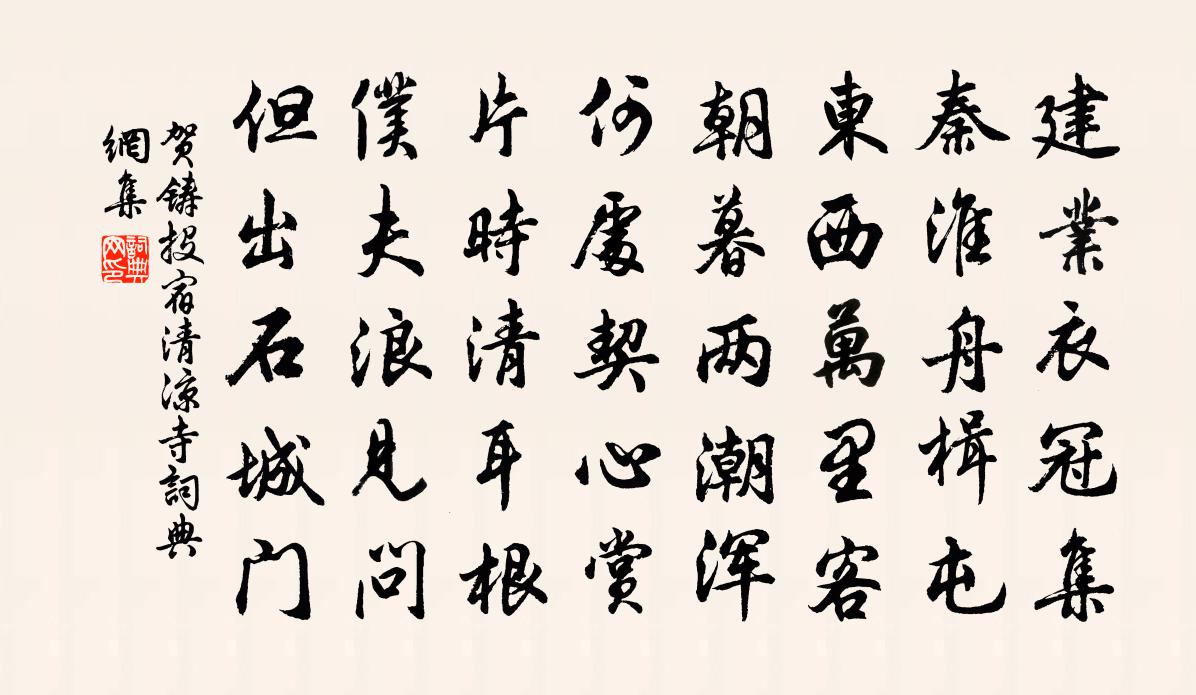 建業衣冠集
秦淮舟楫屯
東西萬里客
朝暮两潮浑
何處契心赏
片時清耳根
僕夫浪見问
但出石城门
贺鑄投宿清凉寺詞典
網集
詞典
网印